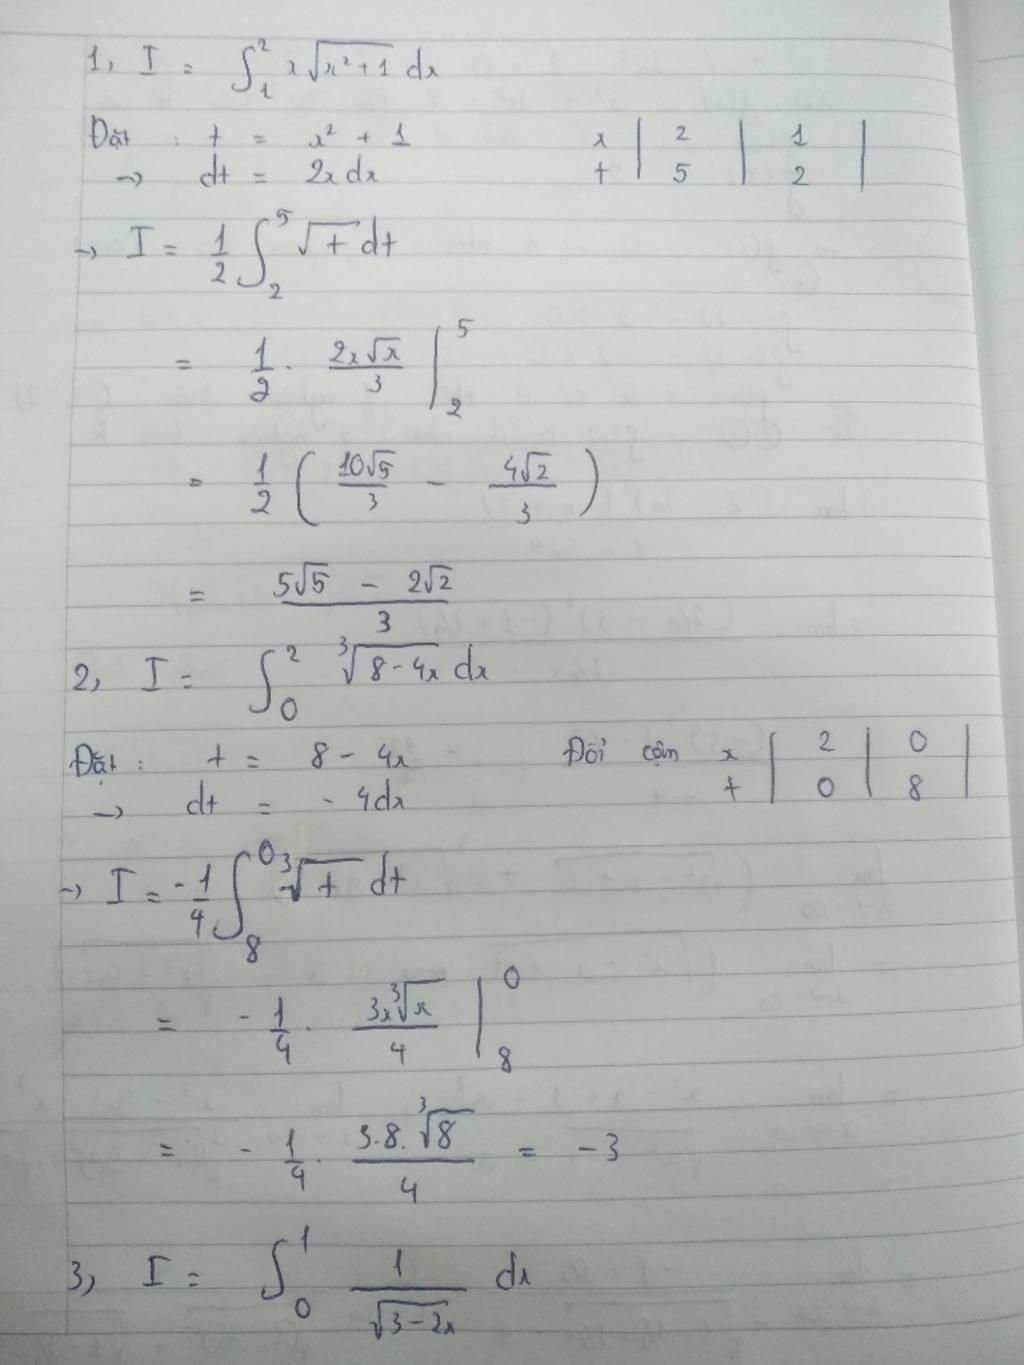 1, I = ∫₁² x√(x² + 1) dx
Đặt : t = x² + 1 x | 2 | 1 |
→ dt = 2x dx t | 5 | 2 |
→ I = 1/2 ∫₂⁵ √t dt
= 1/2 · 2x√x/3 |₂⁵
= 1/2 ( 10√5/3 − 4√2/3 )
= (5√5 − 2√2)/3
2, I = ∫₀² ∛(8 − 4x) dx
Đặt : t = 8 − 4x Đổi cận x | 2 | 0 |
→ dt = - 4dx t | 0 | 8 |
→ I = -1/4 ∫₈⁰ ∛t dt
= - 1/4 · 3x∛x/4 |₈⁰
= - 1/4 · 3.8.∛8/4 = −3
3, I = ∫₀¹ 1/√(3−2x) dx